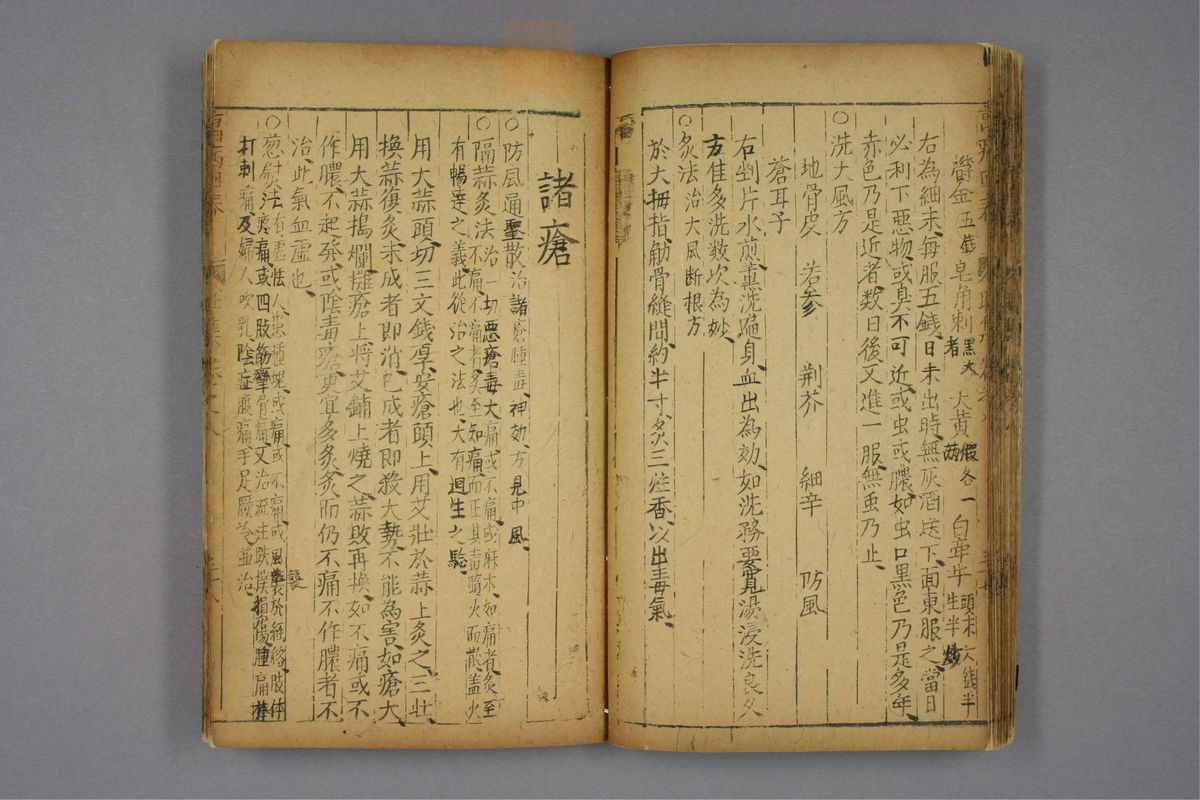 鬱金五錢 皂角刺黑大者 大黃煨各一兩 白牽牛頭末六錢半生半炒
右為細末、每服五錢、日未出時、無灰酒送下、面東服之、當日
必利下惡物、或臭不可近、或虫或膿、如虫口黑色乃是多年、
赤色乃是近者、数日後又進一服、無虫乃止、
○洗大風方
地骨皮 苦参 荆芥 細辛 防風
蒼耳子
右剉片水煎、熏洗遍身、血出為効、如洗務要寬湯浸洗良久
方佳多洗数次為妙、
○灸法治大風断根方
於大拇指觔骨縫間、約半寸灸三炷香、以出毒氣、
諸瘡
○防風通聖散治諸瘡腫毒、神効、方見中風
○隔蒜灸法治一切惡瘡毒大痛、或不痛、或麻木、如痛者灸至
不痛、不痛者灸至知痛、而正其毒隨火而散、盖火
有暢達之義、此從治之法也、大有廻生之騐、
用大蒜頭切三文錢厚、安瘡頭上、用艾壮於蒜上灸之、三壮
換蒜復灸、未成者即消、已成者即殺大勢、不能為害、如瘡大
用大蒜搗爛攤瘡上、將艾鋪上燒之、蒜敗再換、如不痛或不
作膿、不起發、或陰毒瘡、更宜多灸、灸而仍不痛不作膿者不
治、此氣血虛也、
○葱熨法有虛怯人、患腫塊、或痛、或不痛、或風襲於經絡、肢体
疼痛、或四肢筋攣骨痛、又治流注跌撲損傷腫痛、棒
打刺痛、及婦人吹乳、陰症腹痛手足厥冷、並治、